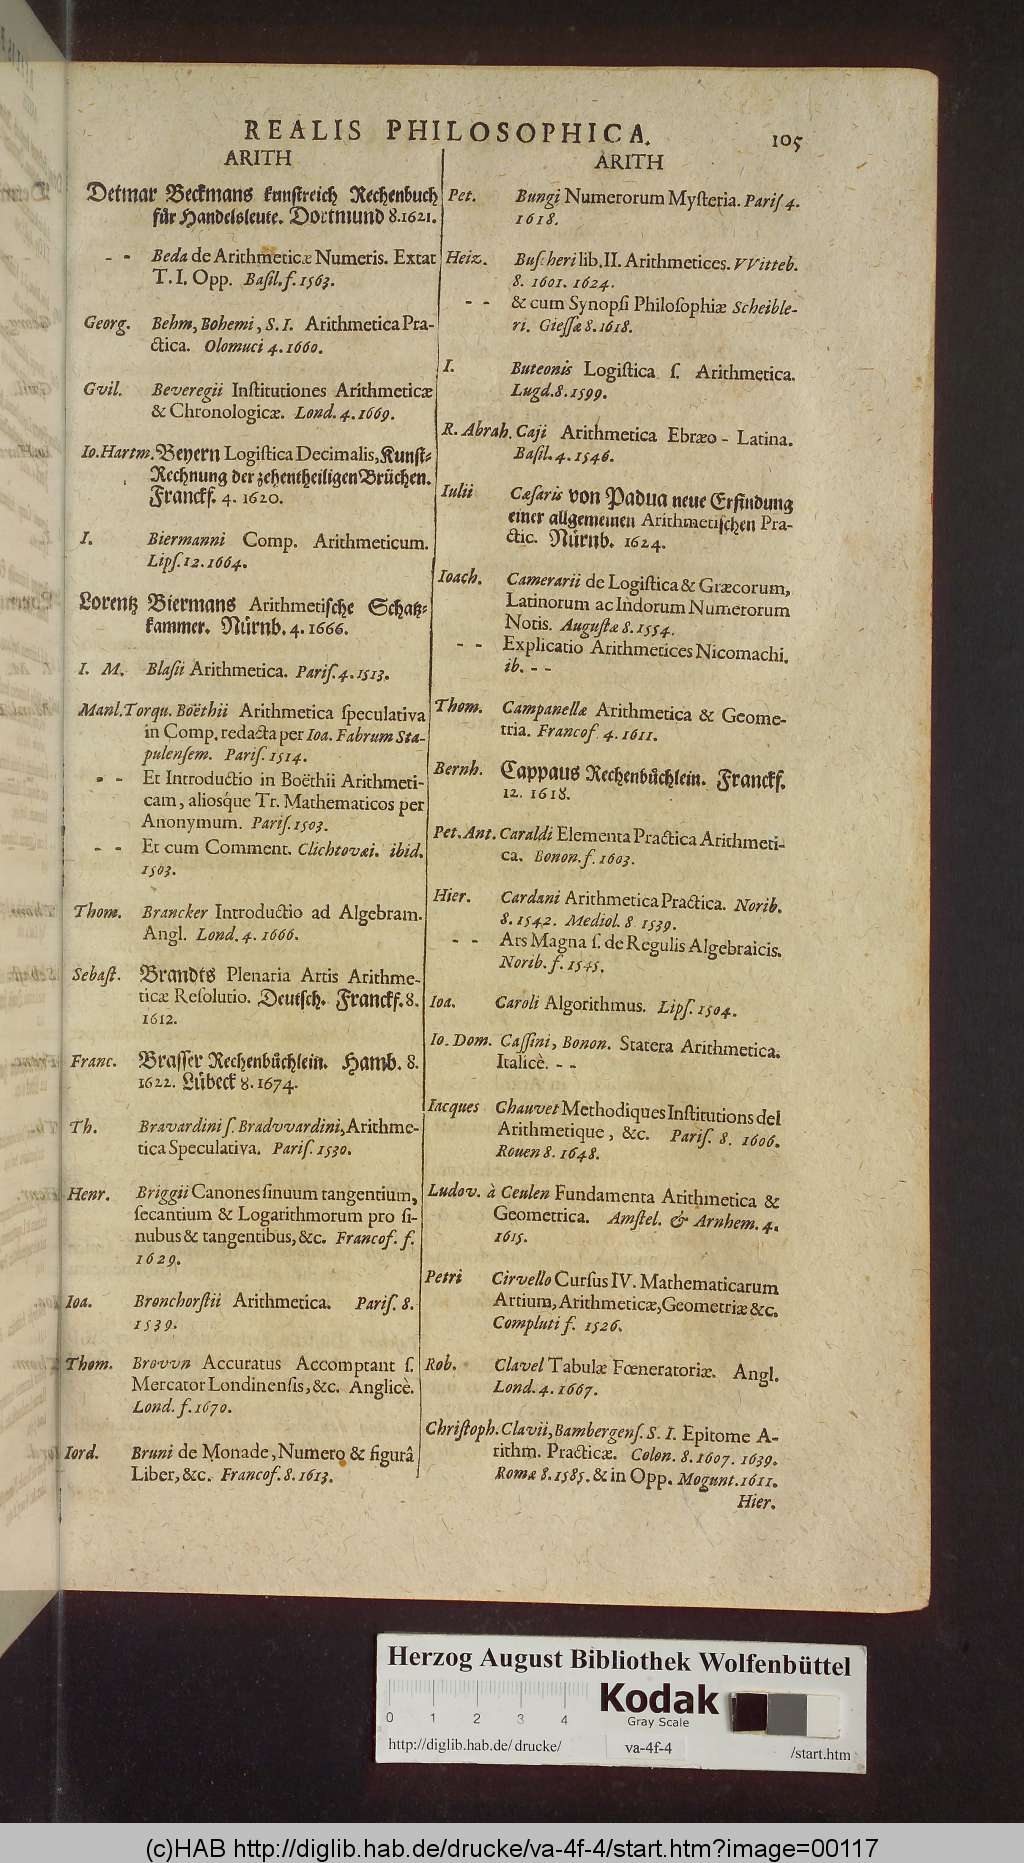 REALIS PHILOSOPHICA. 105
ARITH
Detmar Beckmans kunstreich Rechenbuch
für Handelsleute. Dortmund 8. 1621.
- - Beda de Arithmeticæ Numeris. Extat
T. I. Opp. Basil. f. 1563.
Georg. Behm, Bohemi, S. I. Arithmetica Pra-
ctica. Olomuci 4. 1660.
Gvil. Beveregii Institutiones Arithmeticæ
& Chronologicæ. Lond. 4. 1669.
Io. Hartm. Beyern Logistica Decimalis, Kunst-
Rechnung der zehentheiligen Brüchen.
Franckf. 4. 1620.
I. Biermanni Comp. Arithmeticum.
Lips. 12. 1664.
Lorentz Biermans Arithmetische Schatz-
kammer. Nürnb. 4. 1666.
I. M. Blasii Arithmetica. Paris. 4. 1513.
Manl. Torqu. Boëthii Arithmetica speculativa
in Comp. redacta per Ioa. Fabrum Sta-
pulensem. Paris. 1514.
- - Et Introductio in Boëthii Arithmeti-
cam, aliosque Tr. Mathematicos per
Anonymum. Paris. 1503.
- - Et cum Comment. Clichtovæi. ibid.
1503.
Thom. Brancker Introductio ad Algebram.
Angl. Lond. 4. 1666.
Sebast. Brandts Plenaria Artis Arithme-
ticæ Resolutio. Deutsch. Franckf. 8.
1612.
Franc. Brasser Rechenbüchlein. Hamb. 8.
1622. Lübeck 8. 1674.
Th. Bravardini s. Bradvvardini, Arithme-
tica Speculativa. Paris. 1530.
Henr. Briggii Canones sinuum tangentium,
secantium & Logarithmorum pro si-
nubus & tangentibus, &c. Francof. f.
1629.
Ioa. Bronchorstii Arithmetica. Paris. 8.
1539.
Thom. Brovvn Accuratus Accomptant s.
Mercator Londinensis, &c. Anglicè.
Lond. f. 1670.
Iord. Bruni de Monade, Numero & figurâ
Liber, &c. Francof. 8. 1613.
ARITH
Pet. Bungi Numerorum Mysteria. Paris 4.
1618.
Heiz. Buscheri lib. II. Arithmetices. VVitteb.
8. 1601. 1624.
- - & cum Synopsi Philosophiæ Scheible-
ri. Giessæ 8. 1618.
I. Buteonis Logistica s. Arithmetica.
Lugd. 8. 1599.
R. Abrah. Caji Arithmetica Ebræo-Latina.
Basil. 4. 1546.
Iulii Cæsaris von Padua neue Erfindung
einer allgemeinen Arithmetischen Pra-
ctic. Nürnb. 1624.
Ioach. Camerarii de Logistica & Græcorum,
Latinorum ac Indorum Numerorum
Notis. Augustæ 8. 1554.
- - Explicatio Arithmetices Nicomachi.
ib. - -
Thom. Campanellæ Arithmetica & Geome-
tria. Francof. 4. 1611.
Bernh. Cappaus Rechenbüchlein. Franckf.
12. 1618.
Pet. Ant. Caraldi Elementa Practica Arithmeti-
ca. Bonon. f. 1603.
Hier. Cardani Arithmetica Practica. Norib.
8. 1542. Mediol. 8 1539.
- - Ars Magna s. de Regulis Algebraicis.
Norib. f. 1545.
Ioa. Caroli Algorithmus. Lips. 1504.
Io. Dom. Cassini, Bonon. Statera Arithmetica.
Italicè. - -
Iacques Chauvet Methodiques Institutions del
Arithmetique, &c. Paris. 8. 1606.
Rouen 8. 1648.
Ludov. à Ceulen Fundamenta Arithmetica &
Geometrica. Amstel. & Arnhem. 4.
1615.
Petri Cirvello Cursus IV. Mathematicarum
Artium, Arithmeticæ, Geometriæ &c.
Compluti f. 1526.
Rob. Clavel Tabulæ Fœneratoriæ. Angl.
Lond. 4. 1667.
Christoph. Clavii, Bambergens. S. I. Epitome A-
rithm. Practicæ. Colon. 8. 1607. 1639.
Romæ 8. 1585. & in Opp. Mogunt. 1611.
Hier.
Herzog August Bibliothek Wolfenbüttel
Kodak
Gray Scale
0 1 2 3 4
http://diglib.hab.de/drucke/ va-4f-4 /start.htm
(c)HAB http://diglib.hab.de/drucke/va-4f-4/start.htm?image=00117